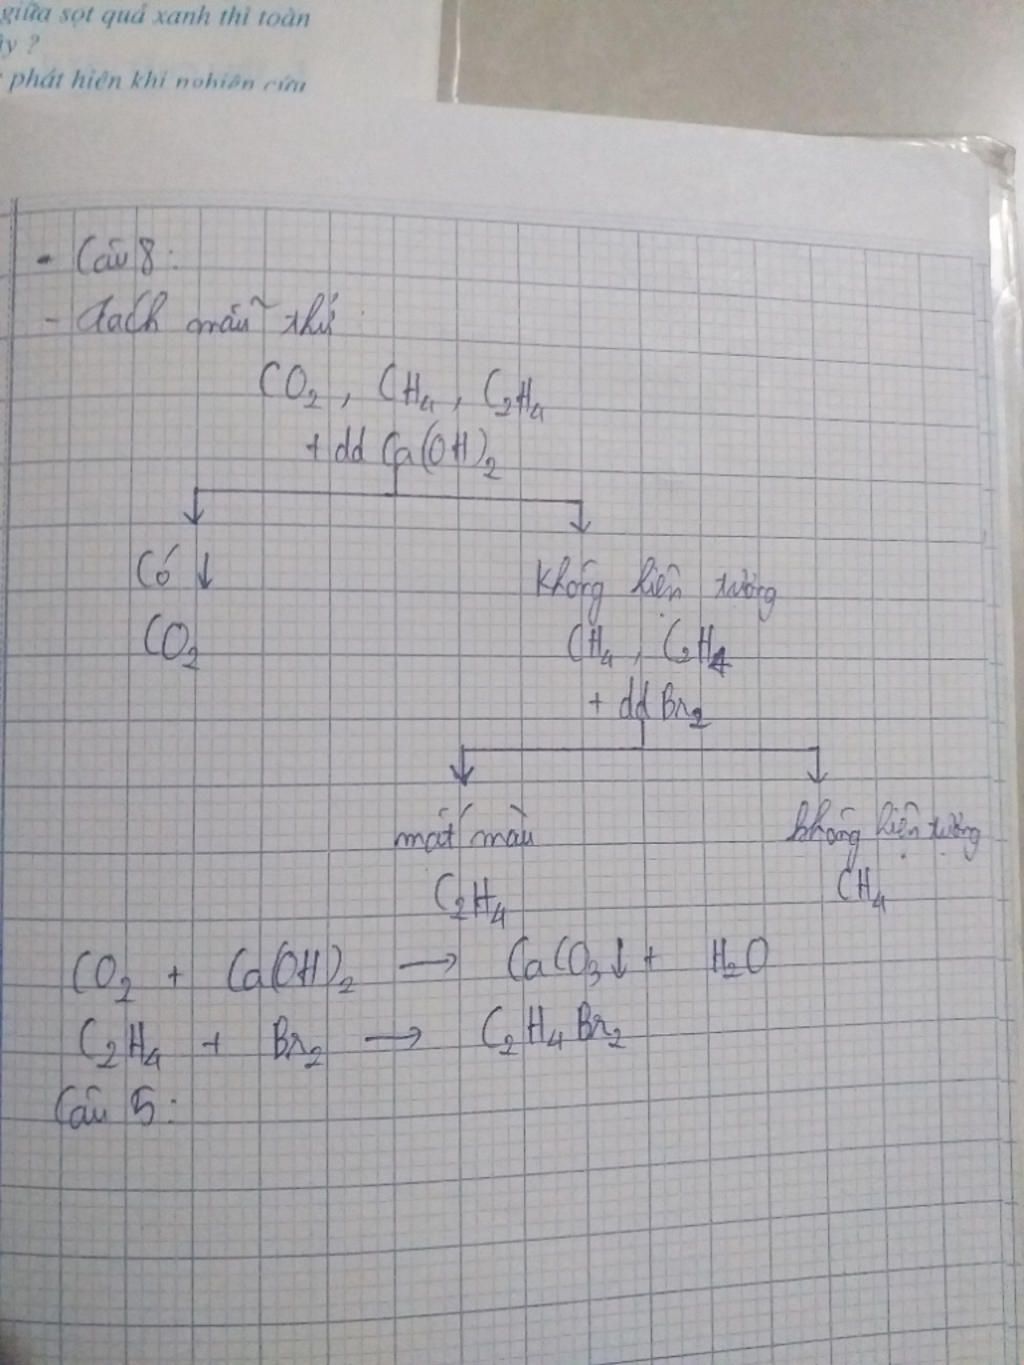 giữa sọt quả xanh thì toàn
ly ?
phát hiện khi nghiên cứu
- Câu 8:
- Tách mẫu thử
CO₂, CH₄, C₂H₄
+ dd Ca(OH)₂
Có ↓ không hiện tượng
CO₂ CH₄, C₂H₄
+ dd Br₂
mất màu không hiện tượng
C₂H₄ CH₄
CO₂ + Ca(OH)₂ → CaCO₃↓ + H₂O
C₂H₄ + Br₂ → C₂H₄Br₂
Câu 5: